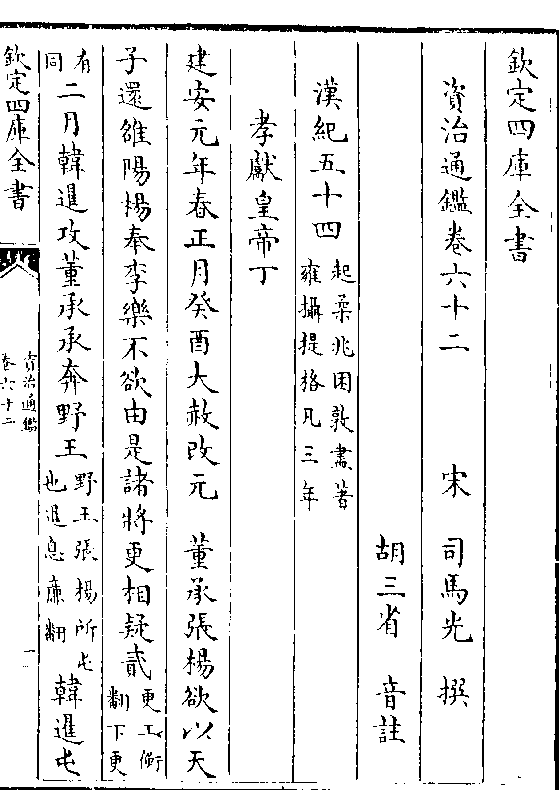 欽定四庫全書
資治通鑑卷六十二
宋 司馬光 撰
胡三省 音註
漢紀五十四 起柔兆困敦盡著
雍攝提格凡三年
孝獻皇帝丁
建安元年春正月癸酉大赦改元 董承張楊欲以天
子還雒陽楊奉李樂不欲由是諸將更相疑貳 更工衡
翻下更
有
同 二月韓暹攻董承承奔野王 野王張楊所屯
也暹息廉翻 韓暹屯
欽定四庫全書
資治通鑑
卷六十二
一